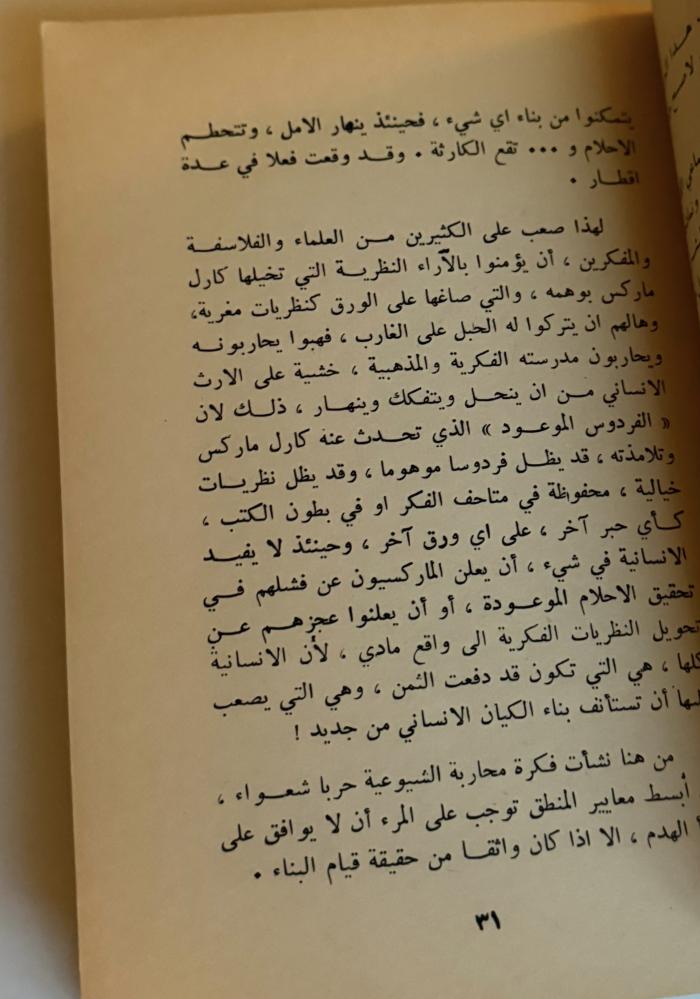 يتمكنوا من بناء اي شيء ، فحينئذ ينهار الامل ، وتتحطم
الاحلام و ... تقع الكارثة . وقد وقعت فعلا في عدة
اقطار .
لهذا صعب على الكثيرين من العلماء والفلاسفة
والمفكرين ، أن يؤمنوا بالآراء النظرية التي تخيلها كارل
ماركس بوهمه ، والتي صاغها على الورق كنظريات مغرية،
وهالهم ان يتركوا له الحبل على الغارب ، فهبوا يحاربونه
ويحاربون مدرسته الفكرية والمذهبية ، خشية على الارث
الانساني من ان ينحل ويتفكك وينهار ، ذلك لان
« الفردوس الموعود » الذي تحدث عنه كارل ماركس
وتلامذته ، قد يظل فردوسا موهوما ، وقد يظل نظريات
خيالية ، محفوظة في متاحف الفكر او في بطون الكتب ،
كأي حبر آخر ، على اي ورق آخر ، وحينئذ لا يفيد
الانسانية في شيء ، أن يعلن الماركسيون عن فشلهم في
تحقيق الاحلام الموعودة ، أو أن يعلنوا عجزهم عن
تحويل النظريات الفكرية الى واقع مادي ، لأن الانسانية
كلها ، هي التي تكون قد دفعت الثمن ، وهي التي يصعب
أن تستأنف بناء الكيان الانساني من جديد !
من هنا نشأت فكرة محاربة الشيوعية حربا شعواء ،
أبسط معايير المنطق توجب على المرء أن لا يوافق على
الهدم ، الا اذا كان واثقا من حقيقة قيام البناء .
٣١